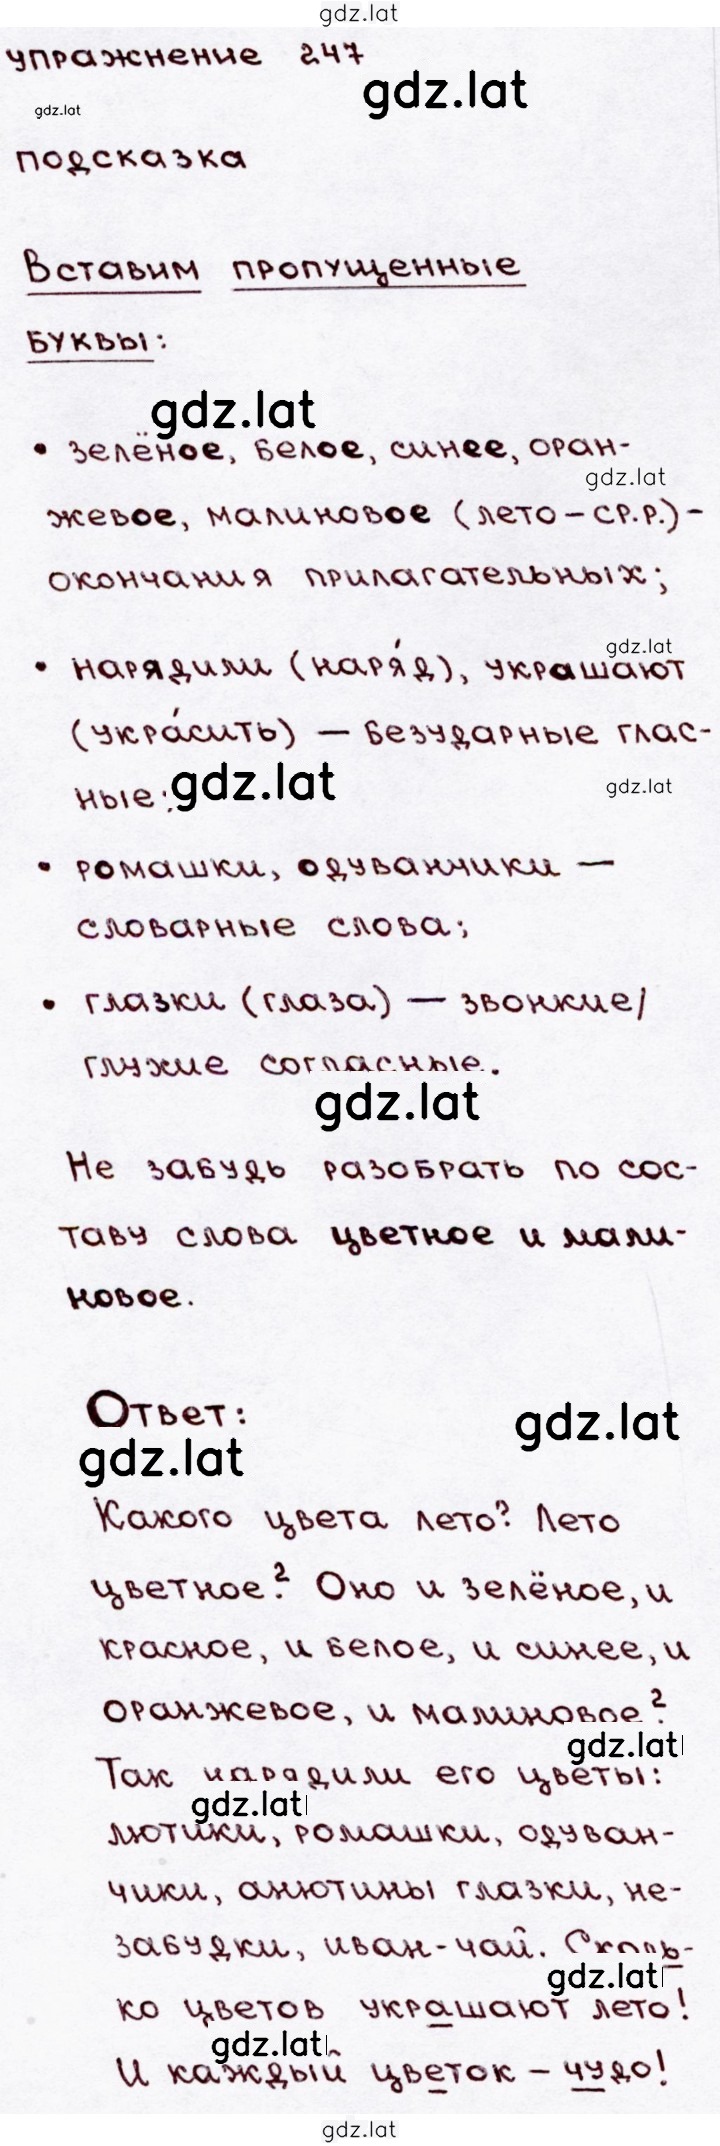 gdz.lat
упражнение 247
gdz.lat
gdz.lat
подсказка
Вставим пропущенные
буквы:
gdz.lat
• зелёное, белое, синее, оран-
gdz.lat
жевое, малиновое (лето – ср.р.)-
окончания прилагательных;
gdz.lat
• нарядили (наря́д), украшают
(укра́сить) — безударные глас-
ные;
gdz.lat
gdz.lat
• ромашки, одуванчики —
словарные слова;
• глазки (глаза) — звонкие/
глухие согласные.
gdz.lat
Не забудь разобрать по сос-
таву слова цветное и мали-
новое.
Ответ:
gdz.lat
gdz.lat
Какого цвета лето? Лето
цветное².  Оно и зелёное, и
красное, и белое, и синее, и
оранжевое, и малиновое².
gdz.lat
Так нарядили его цветы:
gdz.lat
лютики, ромашки, одуван-
чики, анютины глазки, не-
забудки, иван-чай. Сколь-
gdz.lat
ко цветов украшают лето!
gdz.lat
И каждый цветок – чудо!
gdz.lat